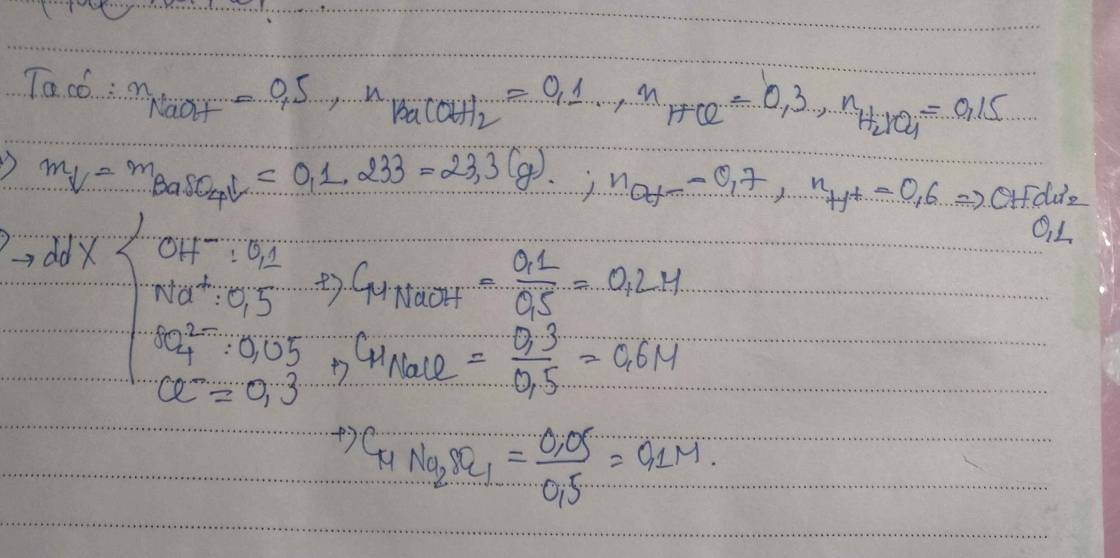 Ta có : n NaOH = 0,5 , n Ba(OH)2 = 0,1 , n HCl = 0,3 , n H2SO4 = 0,15
m↓ = m BaSO4↓ = 0,1. 233 = 23,3 (g). ; n OH- = 0,7 , n H+ = 0,6 => OH- dư =
0,1
→ dd X { OH- : 0,1
Na+ : 0,5 +) CM NaOH = 0,1/0,5 = 0,2M
SO4 2- : 0,05 +) CM NaCl = 0,3/0,5 = 0,6M
Cl- = 0,3
+) CM Na2SO4 = 0,05/0,5 = 0,1M.